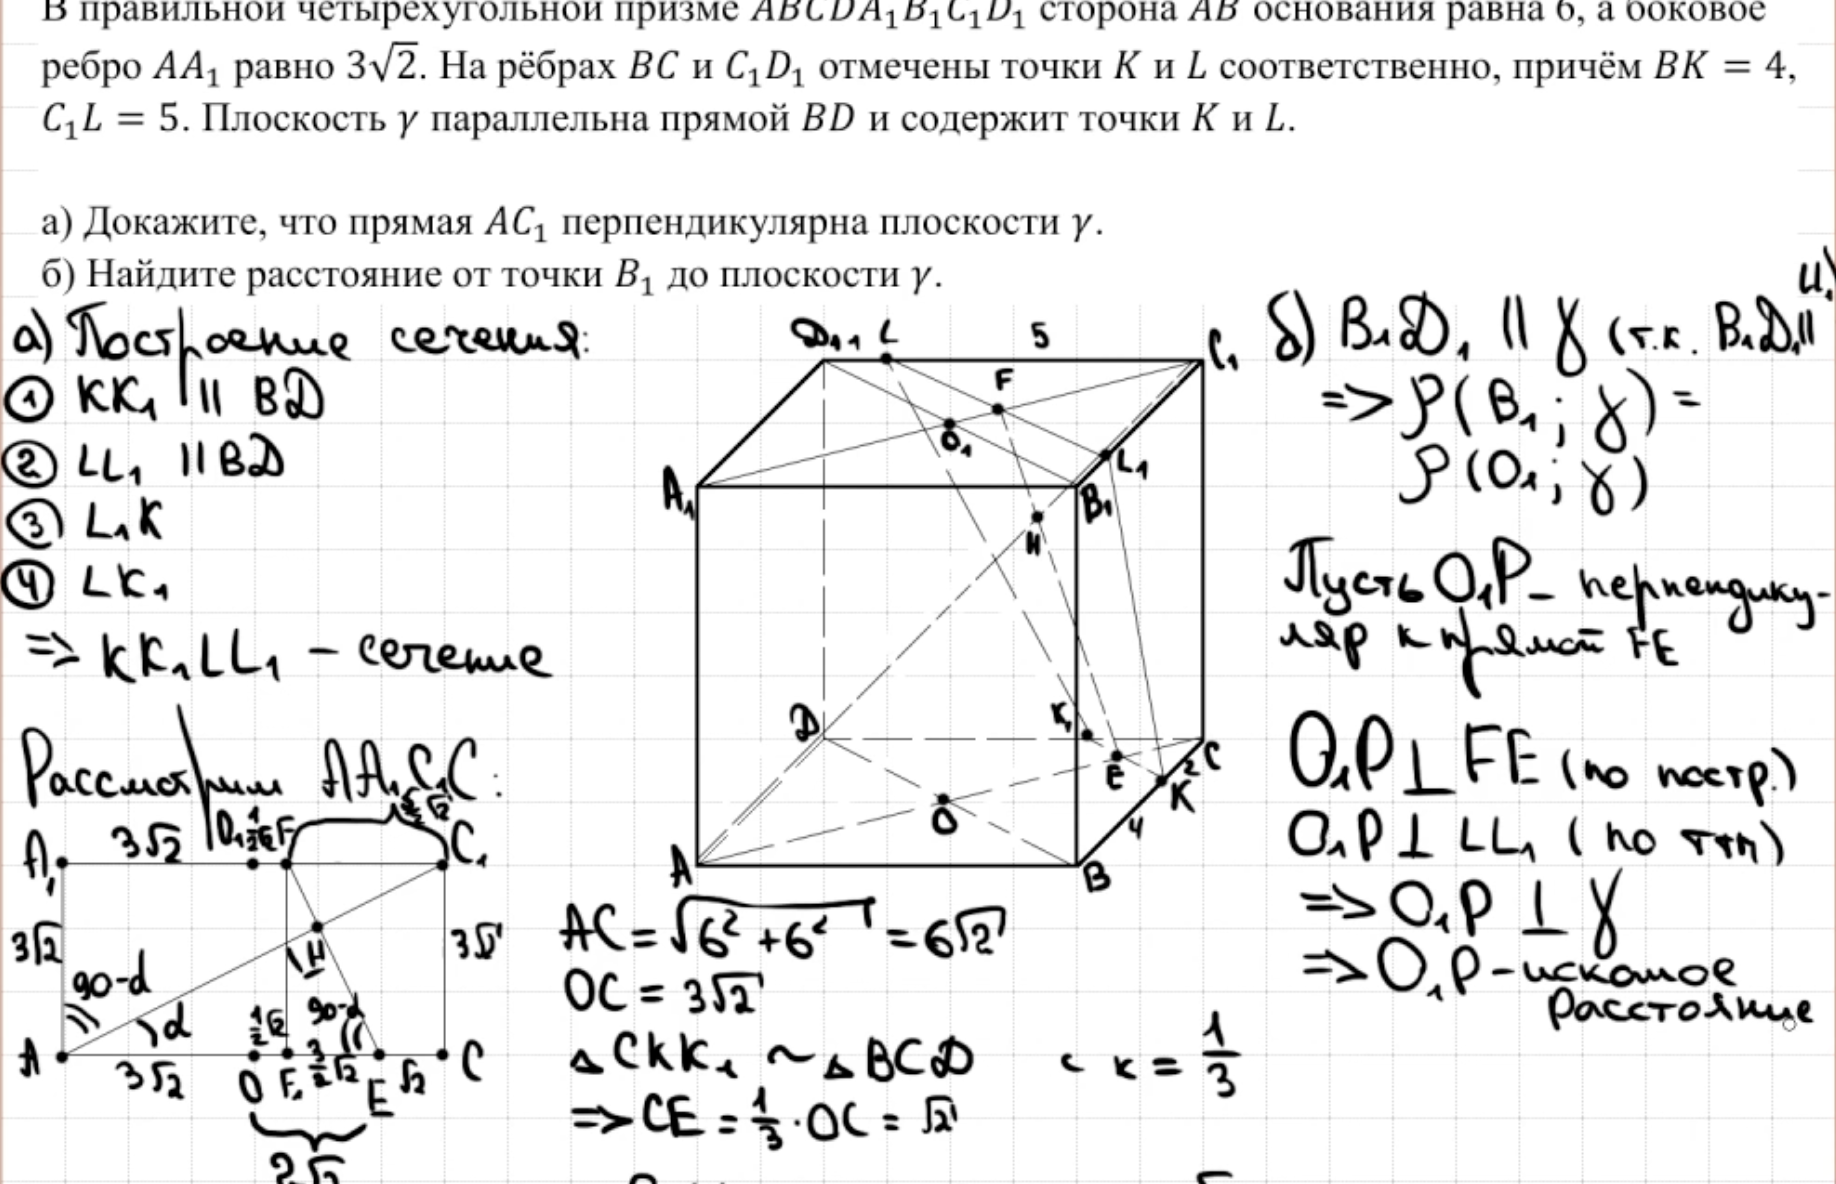 В правильной четырёхугольной призме ABCDA₁B₁C₁D₁ сторона AB основания равна 6, а боковое
ребро AA₁ равно 3√2. На рёбрах BC и C₁D₁ отмечены точки K и L соответственно, причём BK = 4,
C₁L = 5. Плоскость γ параллельна прямой BD и содержит точки K и L.
а) Докажите, что прямая AC₁ перпендикулярна плоскости γ.
б) Найдите расстояние от точки B₁ до плоскости γ.
а) Построение сечения:
① KK₁ || BD
② LL₁ || BD
③ L₁K
④ LK₁
=> KK₁LL₁ – сечение
Рассмотрим AA₁C₁C:
A₁ 3√2 O₁ ½√2 F 5/2√2 C₁
3√2 H 3√2
90-α
α ½√2 90-α
A 3√2 O F₁ 3/2√2 E √2 C
2√2
D₁ L 5 C₁
F
O₁ L₁
A₁ B₁
H
D K₁ E 2 C
O K
4
A B
AC = √6² + 6² = 6√2
OC = 3√2
△CKK₁ ~ △BCD с к = 1/3
=> CE = 1/3 · OC = √2
б) B₁D₁ || γ (т.к. B₁D₁ ||
=> ρ(B₁; γ) =
ρ(O₁; γ)
Пусть O₁P – перпендику-
ляр к прямой FE
O₁P ⊥ FE (по постр.)
O₁P ⊥ LL₁ (по ттп)
=> O₁P ⊥ γ
=> O₁P – искомое
расстояние